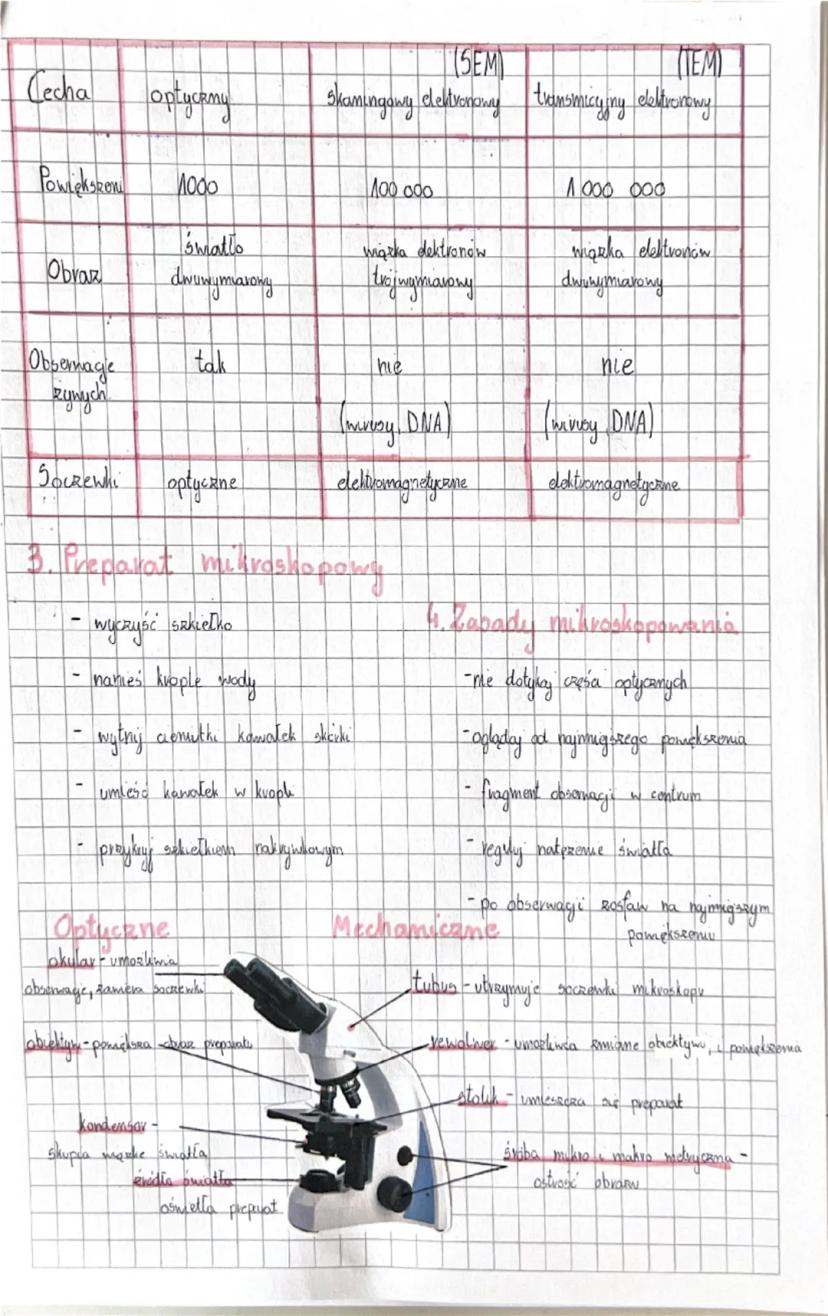 (SEM) (TEM)
Cecha optyczny skaningowy elektronowy transmicyjny elektronowy
Powiększeni 1000 100 000 1 000 000
światło wiązka elektronów wiązka elektronów
Obraz dwuwymiarowy trójwymiarowy dwuwymiarowy
Obserwacje tak nie nie
żywych
(wirusy, DNA) (wirusy, DNA)
Soczewki optyczne elektromagnetyczne elektromagnetyczne
3. Preparat mikroskopowy
- wyczyść szkiełko
- nanieś krople wody
- wytnij cieniutki kawałek skórki
- umieść kawałek w kropli
- przykryj szkiełkiem nakrywkowym
4. Zasady mikroskopowania
- nie dotykaj części optycznych
- oglądaj od najmniejszego powiększenia
- fragment obserwacji w centrum
- reguluj natężenie światła
- po obserwacji zostaw na najmniejszym
powiększeniu
Optyczne
okular - umożliwia
obserwacje, zawiera soczewki
obiektyw - powiększa obraz preparatu
kondensor -
skupia wiązke światła
źródło światła
oświetla preparat
Mechaniczne
tubus - utrzymuje soczewki mikroskopu
rewolwer - umożliwia zmiane obiektywu, i powiększenia
stolik - umieszcza się preparat
śróba mikro i makro metryczna -
ostrość obrazu